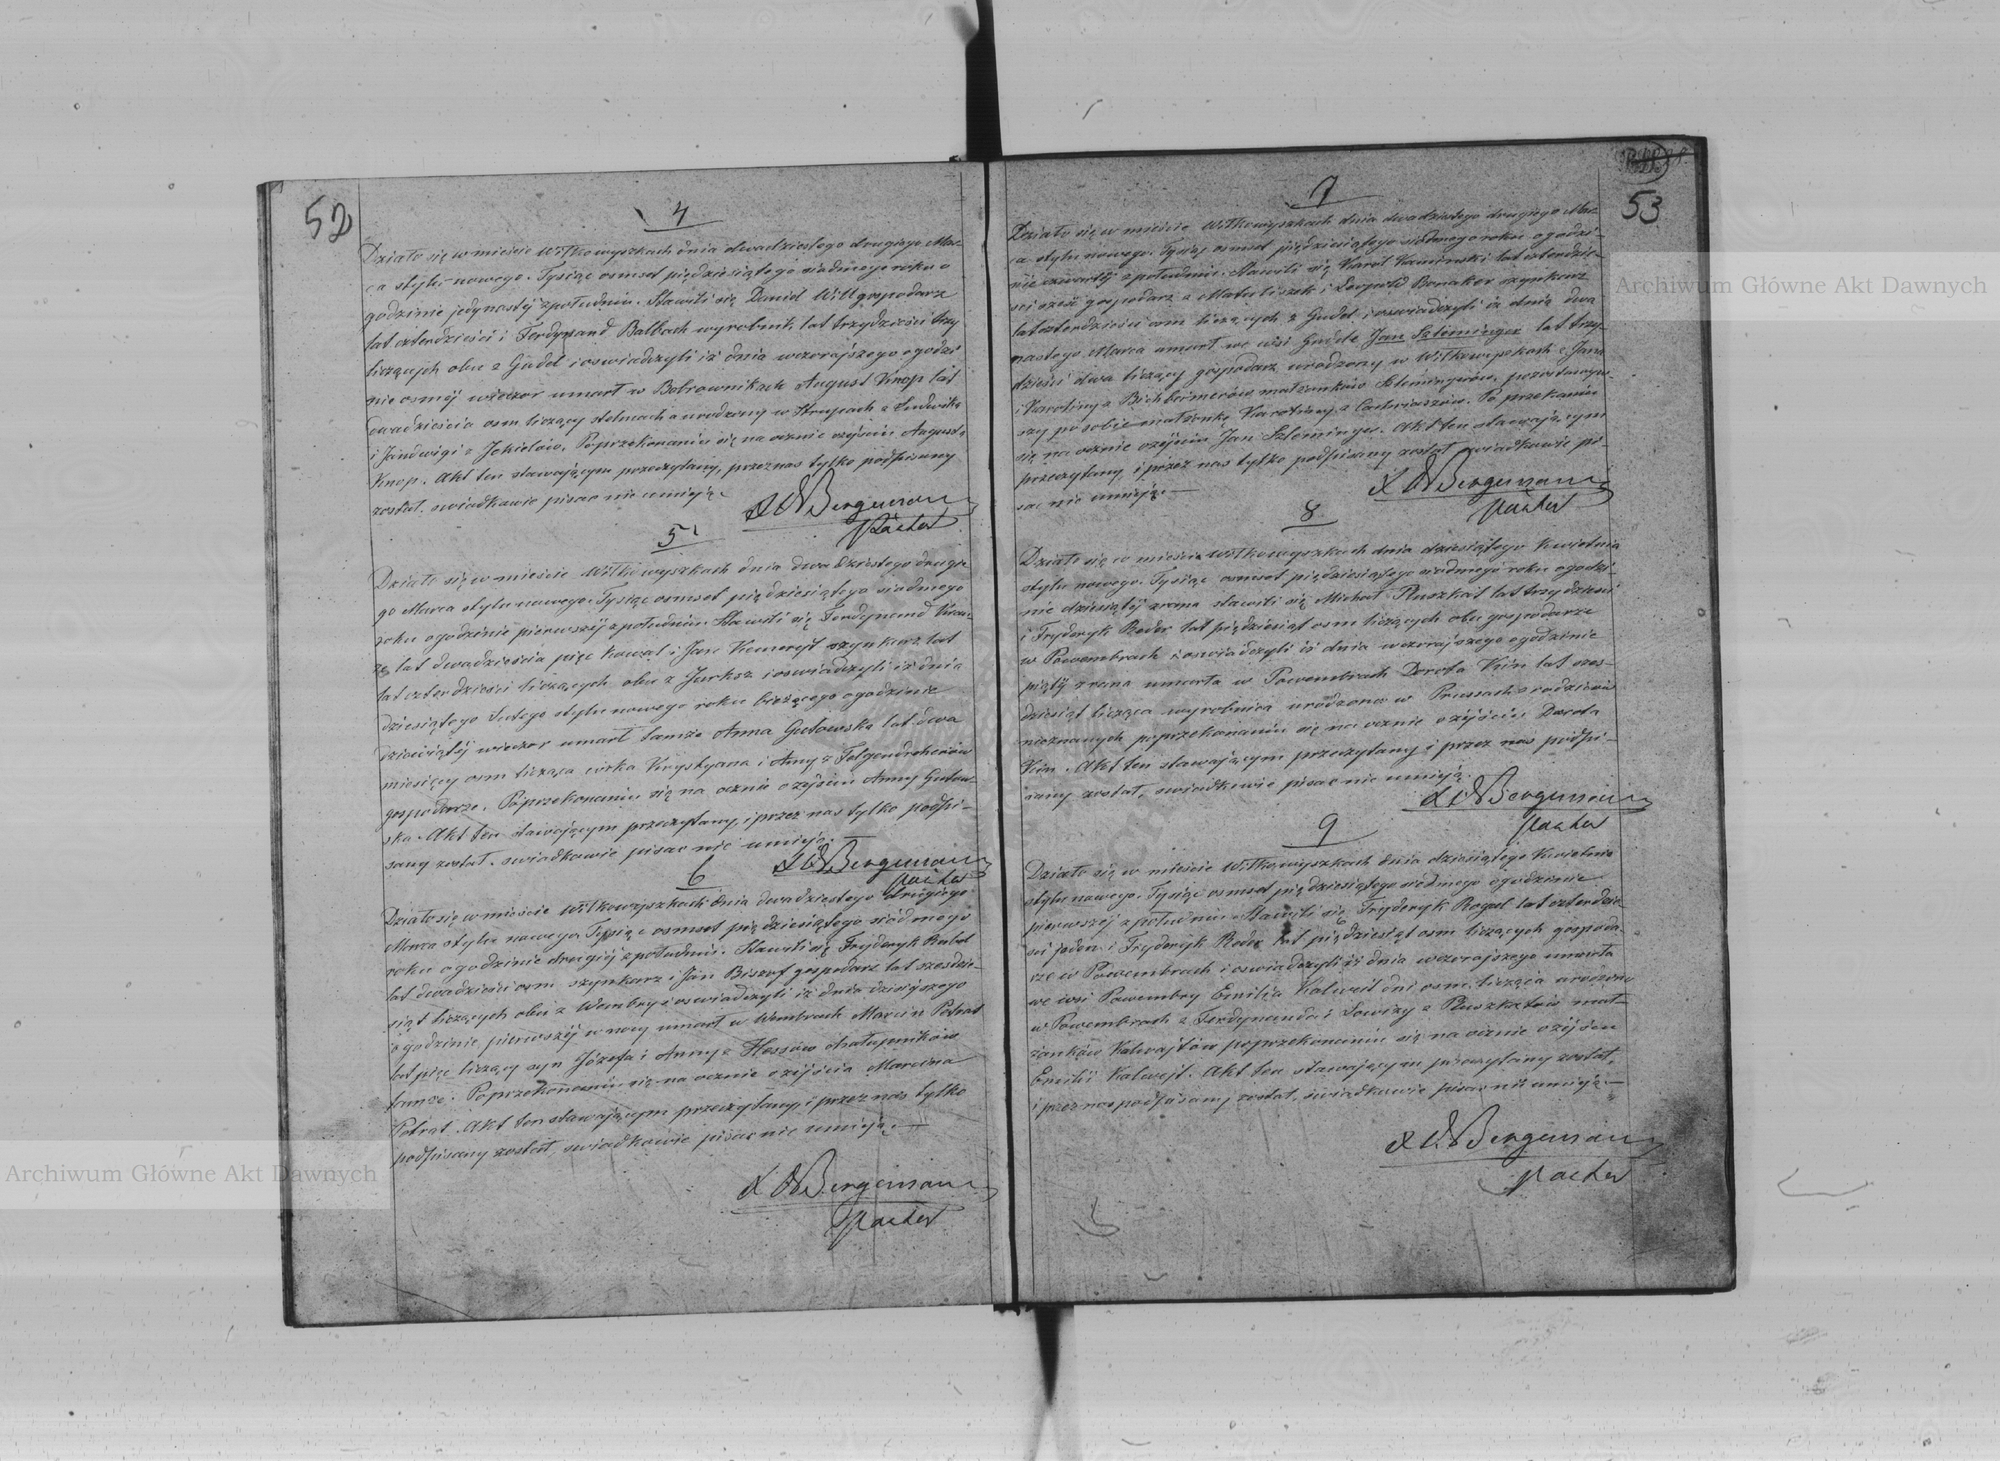 52
4
Działo się w mieście Wiłkowyszkach dnia dwadziestego drugiego Mar-
ca stylu nowego. Tysiąc osmset piędziesiątego siódmego roku o
godzinie jedynastej z południu. Stawili się Daniel Will gospodarz
lat czterdzieści i Ferdynand Balbach wyrobnik, lat trzydzieści trzy
liczących obu z Gudel i oswiadczyli iż dnia wczorajszego o godzi
nie osmej wieczor umarł w Bobrownikach August Knop lat
dwadzieścia osm liczący stelmach a urodzony w Strupach z Ludwika
i Jandwigi z Jekielów, Po przekonaniu się na ocznie o zejściu Augusta
Knop. Akt ten stawającym przeczytany, przez nas tylko podpisany
został. swiadkowie pisac nie umieją.
X A Bergemann
Pastor
5
Działo się w mieście Wiłkowyszkach dnia dwadziestego drugie
go Marca stylu nowego. Tysiąc osmset pięćdziesiątego siódmego
roku o godzinie pierwszej z południu. Stawili się Ferdynand Krau-
ze lat dwadzieścia pięc kowal i Jan Kemeryt szynkarz lat
lat czterdzieści liczących obu z Jurksz i oswiadczyli iż dnia
dziesiątego Lutego stylu nowego roku bieżącego o godzinie
dziewiątej wieczor umarł tamże Anna Gutowska lat dwa
miesięcy osm licząca córka Krystyana i Anny z Folgendreherów
gospodarze. Po przekonaniu się na ocznie o zejściu Anny Gutow-
ska. Akt ten stawającym przeczytany, i przez nas tylko podpi-
sany został. swiadkowie pisac nie umieją.
X A Bergemann
Pastor
6
Działo się w mieście Wiłkowyszkach dnia dwadziestego drugiego
Marca stylu nowego, Tysiąc osmset pięćdziesiątego siódmego
roku o godzinie drugiej z południu. Stawili się Fryderyk Babel
lat dwadzieści osm szynkarz i Jan Biszof gospodarz lat szesdzie-
siąt liczących obu z Wembry i oswiadczyli iż dnia dzisiejszego
o godzinie pierwszej w nocy umarł w Wembrach Marcin Potrat
lat pięc liczący syn Józefa i Anny z Hessów chałupników
tamże. Po przekonaniu się na ocznie o zejścia Marcina
Potrat. Akt ten stawającym przeczytany i przez nas tylko
podpisany został, swiadkowie pisac nie umieją.
X A Bergemann
Pastor
53
7
Działo się w mieście Wiłkowyszkach dnia dwadziestego drugiego Mar-
ca stylu nowego. Tysiąc osmset pięćdziesiątego siódmego roku o godzi-
nie czwartej z południu. Stawili się Karol Kaminski lat czterdzie-
ści sześć gospodarz z Matuliszek i Leopold Bonaker szynkarz
lat czterdzieści osm liczących z Gudel i oswiadczyli iż dnia dwu
nastego Marca umarł we wsi Gudele Jan Szleminger lat trzy-
dzieści dwa liczący gospodarz urodzony w Wiłkowyszkach z Jana
i Karoliny z Bichbermerów małżonków Szlemingerów, pozostawiw-
szy po sobie małżonkę Karolinę z Czchmiaszów. Po przekaniu
się na ocznie o zejściu Jan Szleminger. Akt ten stawającym
przeczytany, i przez nas tylko podpisany został swiadkowie pi-
sac nie umieją.
X A Bergemann
Pastor
8
Działo się w mieście Wiłkowyszkach dnia dziesiątego Kwietnia
stylu nowego. Tysiąc osmset pięćdziesiątego siódmego roku o godzi-
nie dziesiątej z rana stawili się Michał Pluszkat lat trzydzieści
i Fryderyk Reder lat pięćdziesiąt osm liczących obu gospodarze
w Powembrach i oswiadczyli iż dnia wczorajszego o godzinie
piątej z rana umarła w Powembrach Dorota Kün lat szes-
dziesiąt licząca wyrobnica urodzona w Prussach z rodziców
nieznanych po przekonaniu się na ocznie o zejściu Dorota
Kün. Akt ten stawającym przeczytany i przez nas podpi-
sany został, swiadkowie pisac nie umieją.
X A Bergemann
Pastor
9
Działo się w mieście Wiłkowyszkach dnia dziesiątego Kwietnia
stylu nowego. Tysiąc osmset pięćdziesiątego siódmego o godzinie
pierwszej z południu. Stawili się Fryderyk Rogal lat czterdzie-
ści jeden i Fryderyk Reder lat pięćdziesiąt osm liczących gospoda-
rze w Powembrach i oswiadczyli iż dnia wczorajszego umarła
we wsi Powembry Emilja Kalweit dni osm licząca urodzona
w Powembrach z Ferdynanda i Lowizy z Pluszkatów mał-
żonków Kalwajtów po przekonaniu się na ocznie o zejściu
Emilii Kalwejt. Akt ten stawającym przeczytany został,
i przez nas podpisany został, swiadkowie pisac nie umieją.
X A Bergemann
Pastor
Archiwum Główne Akt Dawnych
Archiwum Główne Akt Dawnych